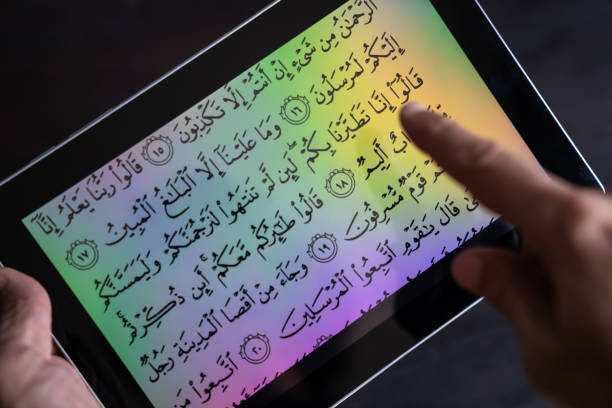 الرَّحْمَٰنُ مِن شَيْءٍ إِنْ أَنتُمْ إِلَّا تَكْذِبُونَ ١٥ قَالُوا رَبُّنَا يَعْلَمُ إِنَّا
إِلَيْكُمْ لَمُرْسَلُونَ ١٦ وَمَا عَلَيْنَا إِلَّا الْبَلَٰغُ الْمُبِينُ ١٧
قَالُوا إِنَّا تَطَيَّرْنَا بِكُمْ لَئِن لَّمْ تَنتَهُوا لَنَرْجُمَنَّكُمْ وَلَيَمَسَّنَّكُم
أَلِيمٌ ١٨ قَالُوا طَٰئِرُكُم مَّعَكُمْ أَئِن ذُكِّرْتُم
قَوْمٌ مُّسْرِفُونَ ١٩ وَجَاءَ مِنْ أَقْصَا الْمَدِينَةِ رَجُلٌ
قَالَ يَٰقَوْمِ اتَّبِعُوا الْمُرْسَلِينَ ٢٠ اتَّبِعُوا مَن